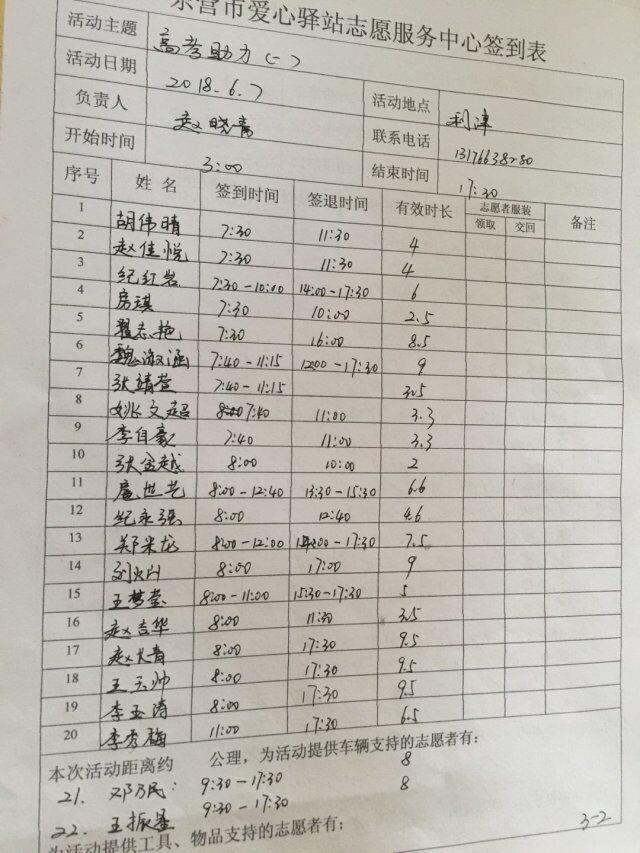 东营市爱心驿站志愿服务中心签到表
活动主题 高考助力(一)
活动日期 2018.6.7 活动地点 利津
负责人 赵晓青 联系电话 13176638280
开始时间 3:00 结束时间 17:30
序号 姓名 签到时间 签退时间 有效时长 志愿者服装 领取 交回 备注
1 胡伟晴 7:30 11:30 4
2 赵佳悦 7:30 11:30 4
3 纪红岩 7:30-10:00 14:00-17:30 6
4 房琪 7:30 10:00 2.5
5 翟志艳 7:30 16:00 8.5
6 魏淑涵 7:40-11:15 12:00-17:30 9
7 张靖萱 7:40-11:15 3.5
8 姚文超 7:40 11:00 3.3
9 李自豪 7:40 11:00 3.3
10 张金越 8:00 10:00 2
11 扈世艺 8:00-12:40 13:30-15:30 6.6
12 纪永强 8:00 12:40 4.6
13 郑米龙 8:00-12:00 14:00-17:30 7.5
14 8:00 17:00 9
15 王梦莹 8:00-11:00 15:30-17:30 5
16 赵吉华 8:00 11:30 3.5
17 赵大青 8:00 17:30 9.5
18 王玉帅 8:00 17:30 9.5
19 李玉涛 8:00 17:30 9.5
20 李秀梅 11:00 17:30 6.5
本次活动距离约 公理，为活动提供车辆支持的志愿者有：
21. 邓乃民: 9:30-17:30 8
22. 王振 9:30-17:30 8
为活动提供工具、物品支持的志愿者有：
3-2